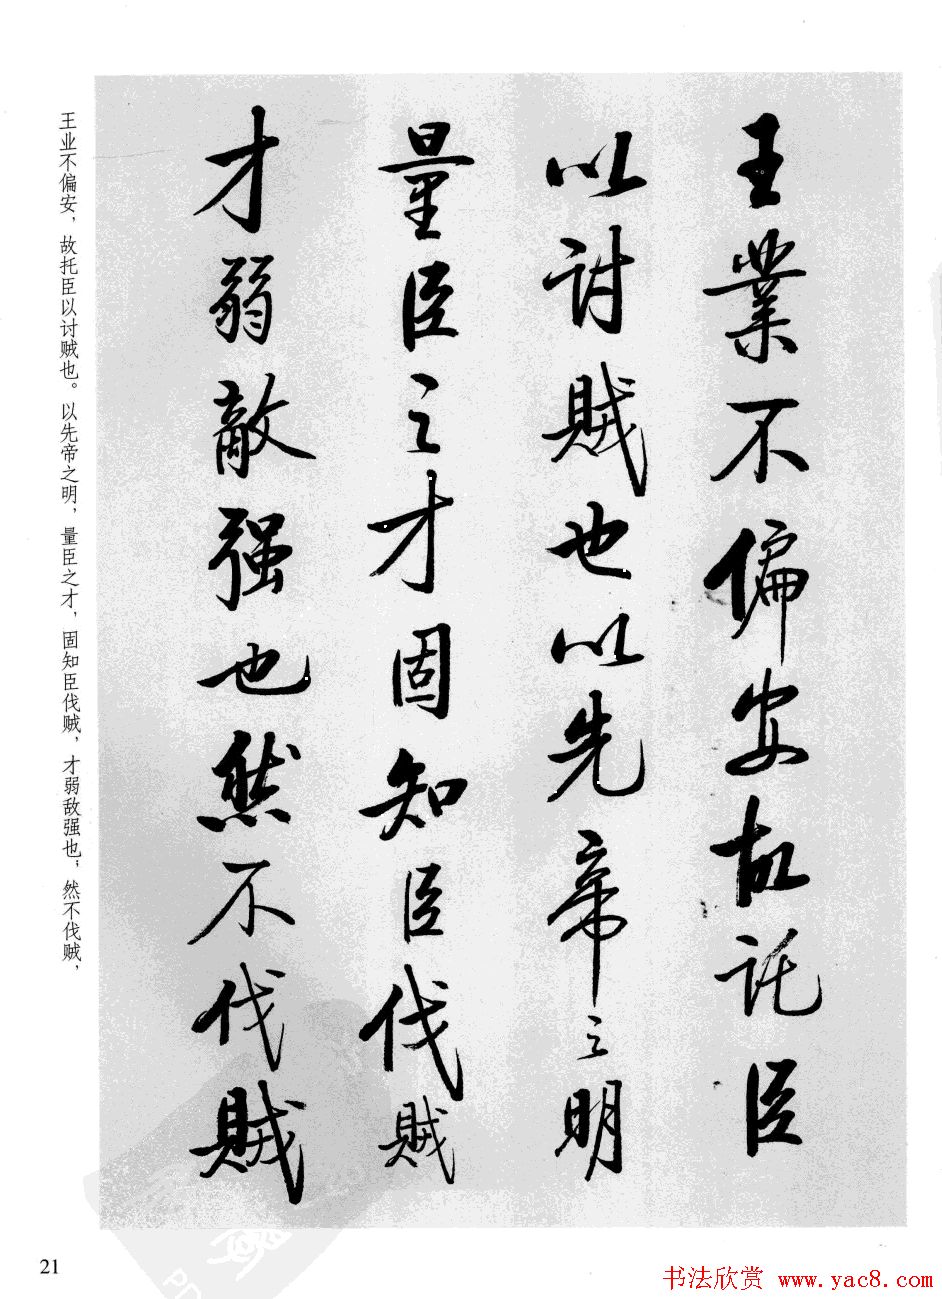 王業不偏安故託臣
以討賊也以先帝之明
量臣之才固知臣伐賊
才弱敵强也然不伐賊
王业不偏安，故托臣以讨贼也。以先帝之明，量臣之才，固知臣伐贼，才弱敌强也；然不伐贼，
21
书法欣赏 www.yac8.com